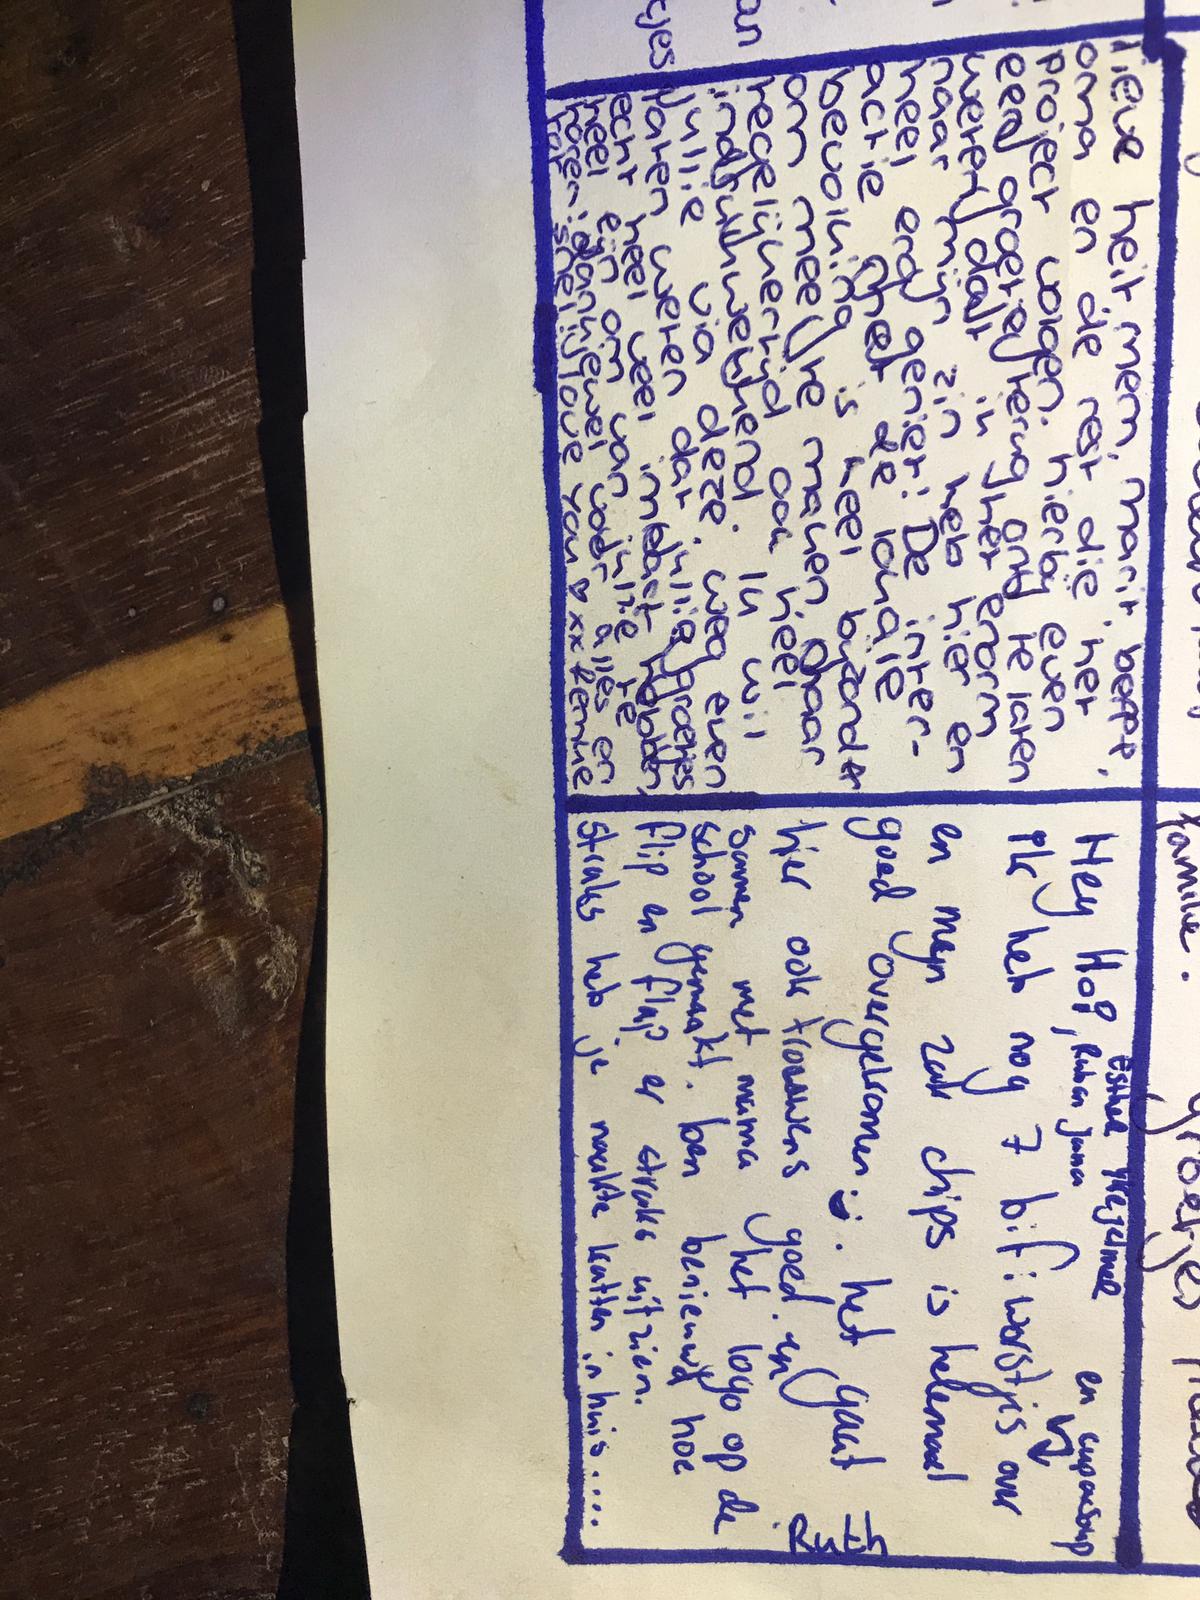 lieve heit, mem, marit, beppe,
oma en de rest die het
project volgen. hierbij even
een groetje terug om te laten
weten dat ik het enorm
naar mijn zin heb hier en
heel erg geniet! De inter-
actie met de lokale
bevolking is heel bijzonder
om mee te maken maar
tegelijkertijd ook heel
indrukwekkend. Ik wil
jullie via deze weg even
laten weten dat jullie groetjes
echt heel veel impact hebben,
heel fijn om van jullie te
horen! dankjewel voor alles en
tot snel! ily love you xx femke
Hey Hoi, Ruben Jama
Esther
en cupasoup
Ik heb nog 7 bifi worstjes over
en mijn zak chips is helemaal
goed overgekomen :). het gaat
hier ook trouwens goed. en
samen met mama het logo op de
school gemaakt. ben benieuwd hoe
flip en flap er straks uitzien.
straks heb je naakte katten in huis.....
Ruth
familie.
groetjes